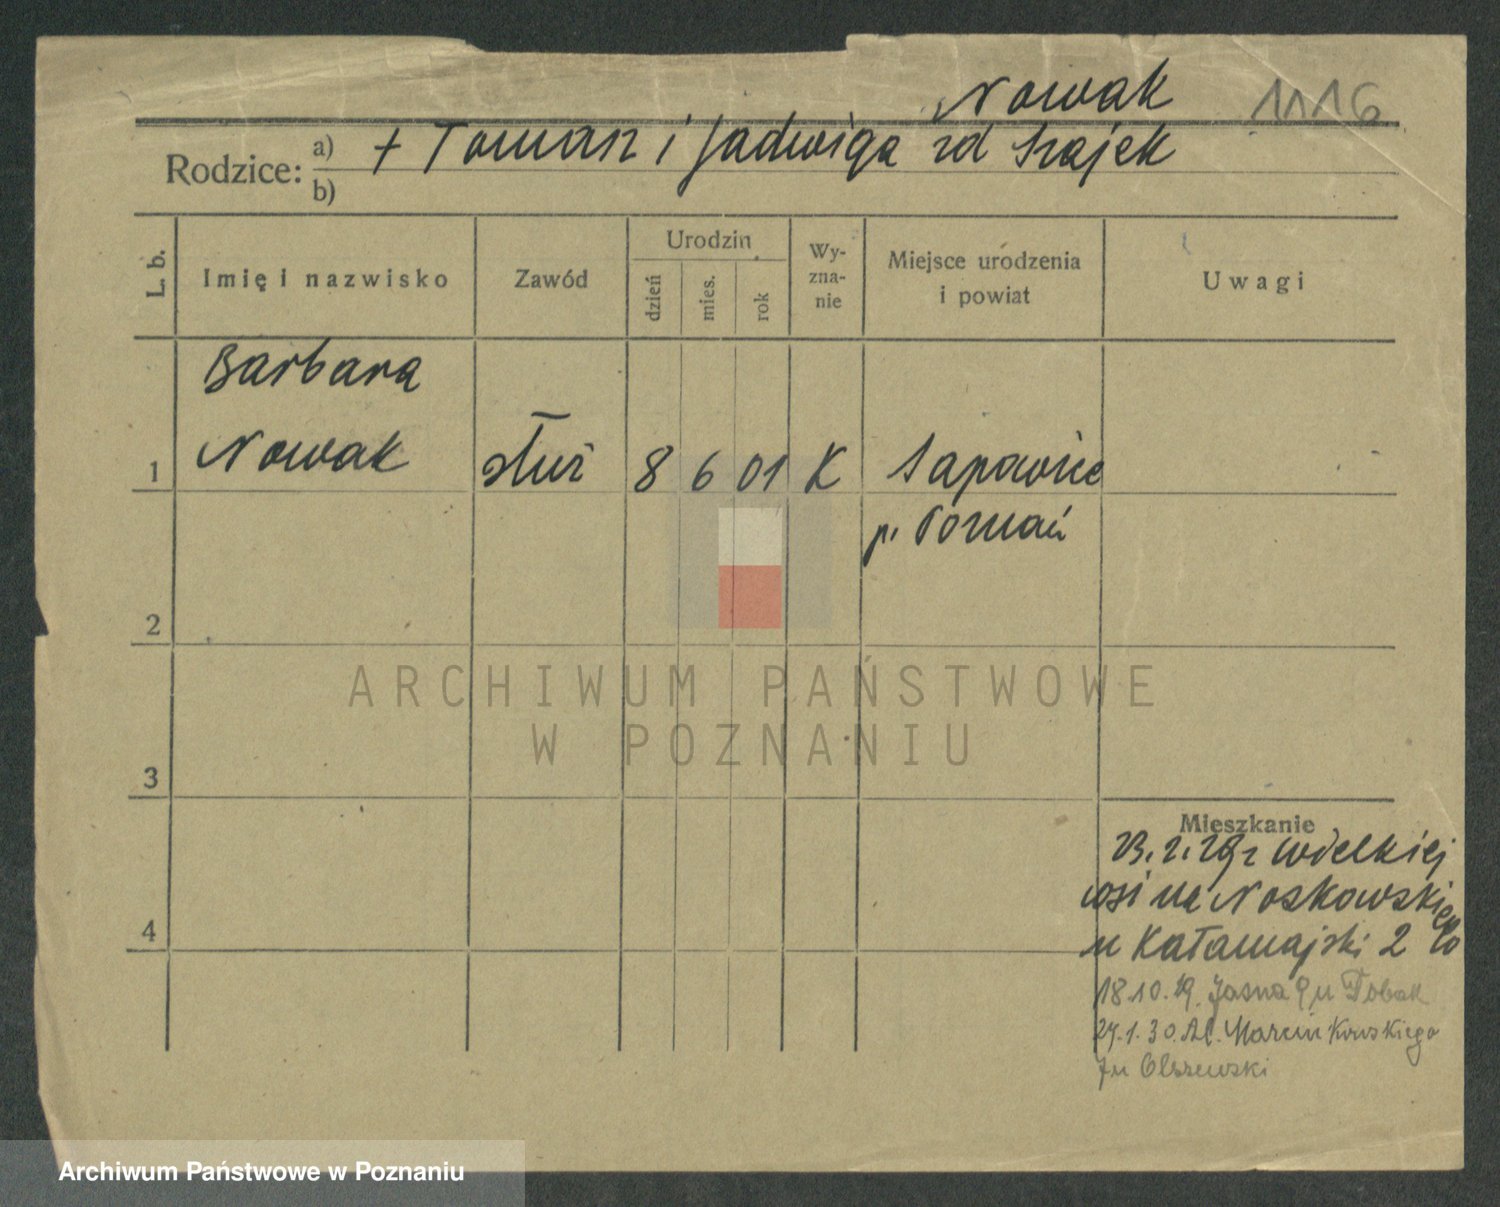 Nowak 1116
Rodzice: a) + Tomasz i Jadwiga zd Szajek
b)
L. b.
Imię i nazwisko
Zawód
Urodzin
dzień
mies.
rok
Wy-
zna-
nie
Miejsce urodzenia
i powiat
Uwagi
Barbara
1 Nowak służ 8 6 01 K Sapowice
p. Poznań
2
ARCHIWUM PAŃSTWOWE
W POZNANIU
3
Mieszkanie
23.2.29 z Wielkiej
wsi na Noskowskiego
4 u Katamajski 2
18.10.29. Jasna 9 u Tobak
24.1.30. Al. Marcinkowskiego
7 u Olszewski
Archiwum Państwowe w Poznaniu